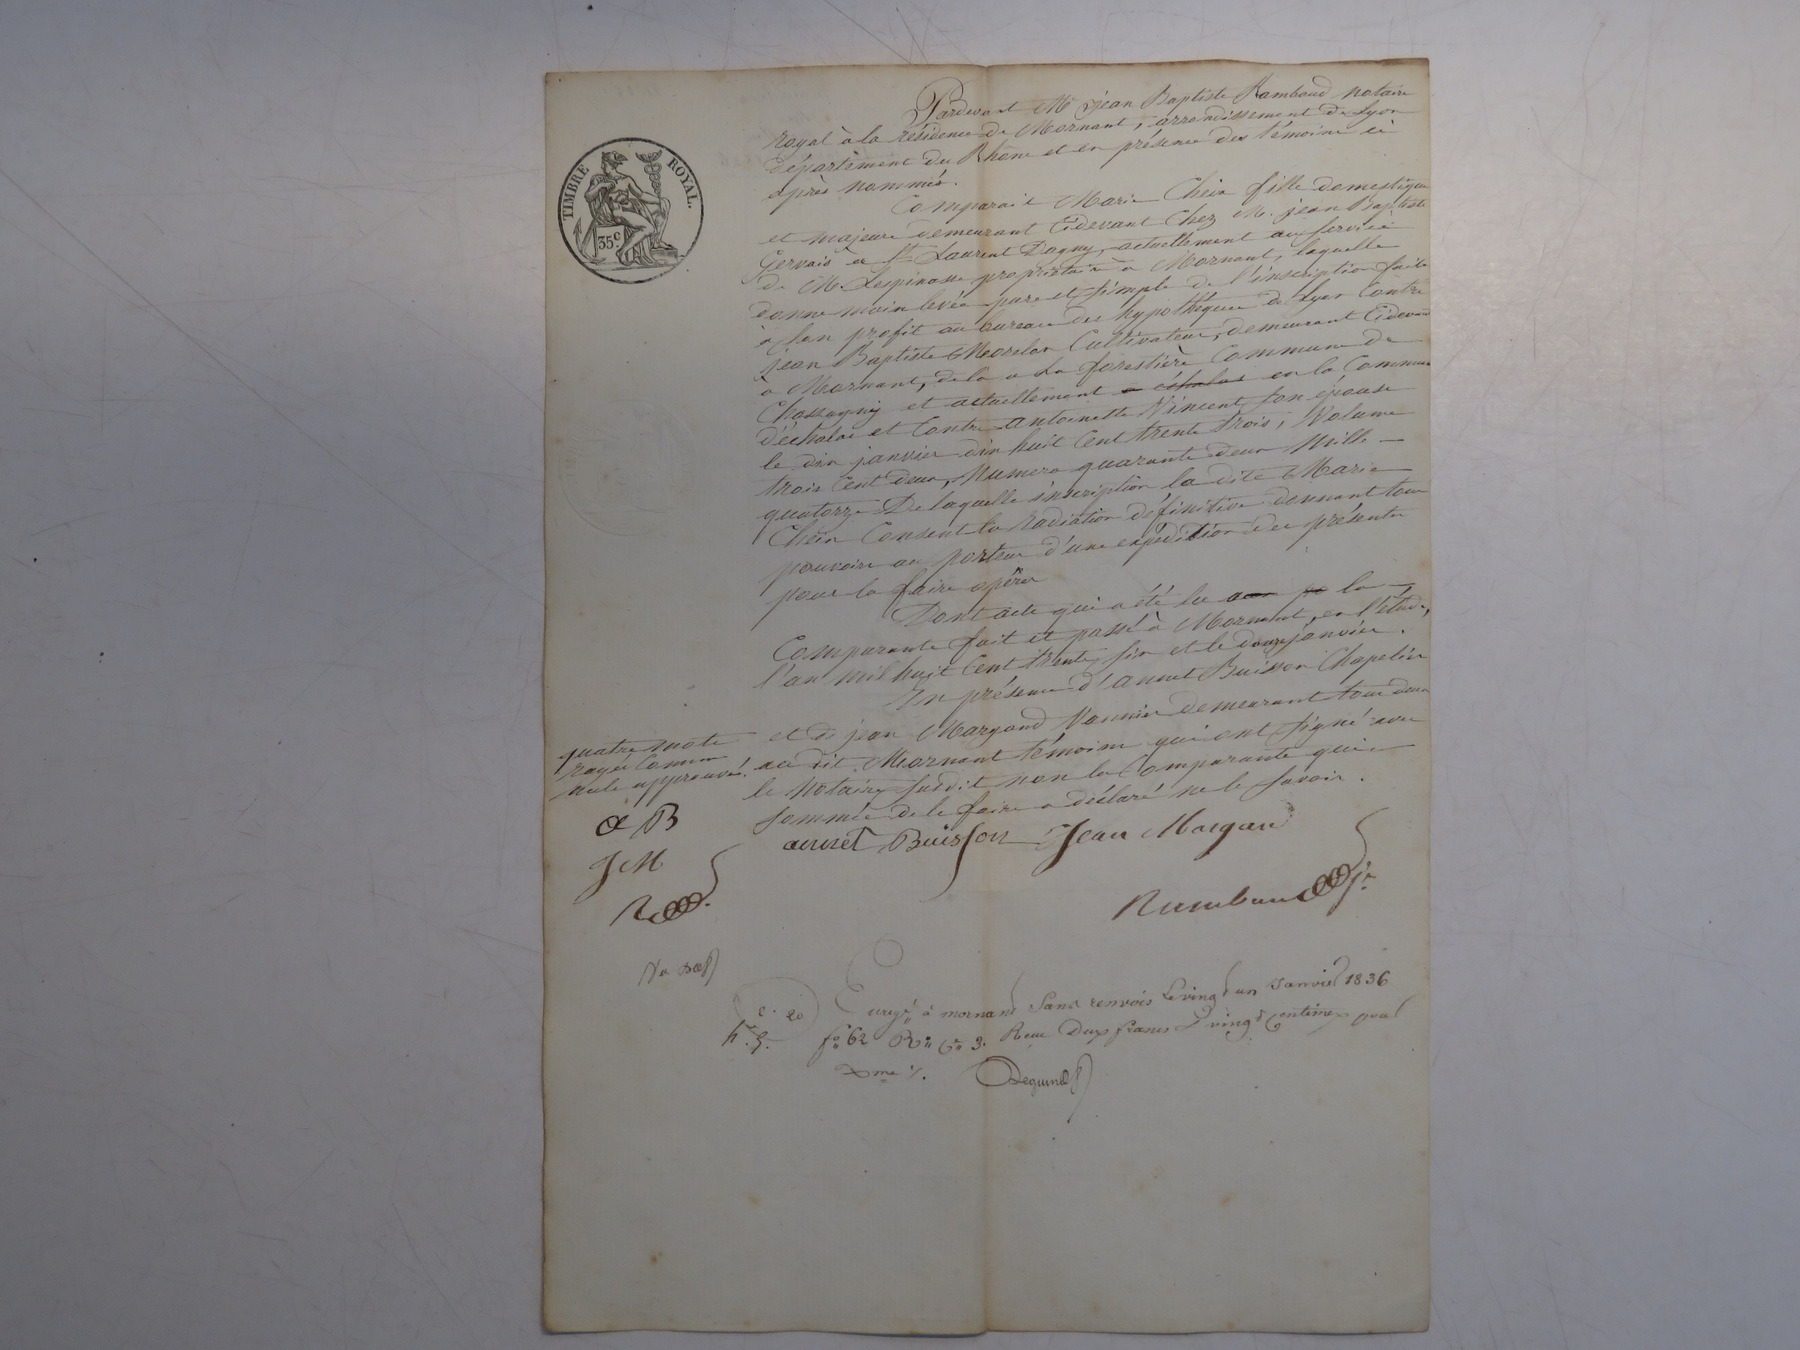 TIMBRE ROYAL.
35c
Pardevant Me jean Baptiste Rambaud notaire
royal à la résidence de Mornant, arrondissement de Lyon
département du Rhône et en présence des témoins ci
après nommés.
Comparait Marie Chein fille domestique
et majeure demeurant cidevant chez M. jean Baptiste
Gervais à St Laurent Dagny, actuellement au service
de M. Lespinasse propriétaire à Mornant, laquelle
donne main levée pure et simple de l'inscription faite
à son profit au bureau des hypothèques de Lyon contre
jean Baptiste Morelon Cultivateur, demeurant cidevant
à Mornant, de là a La forestière Commune de
Chassagny et actuellement a échalas en la Commune
d'échalas et contre antoinette Vincent son épouse
le dix janvier dix huit cent trente trois, Volume
trois cent deux, Numero quarante deux Mille
quatorze De laquelle inscription la dite Marie
Chein Consent la radiation définitive donnant tout
pouvoir au porteur d'une expédition des présentes
pour la faire opérer
Dont acte qui a été lu a la
Comparante fait et passé à Mornant, en l'étude,
l'an mil huit Cent trente six et le douze janvier.
En présence d'annet Buisson Chapelier
et de jean Margand Vannier demeurant tous deux
au dit Mornant témoins qui ont signé avec
le Notaire susdit non la Comparante qui
sommée de le faire a déclaré ne le savoir.
quatre mots
rayés Comme
nuls approuvés.
a B
J M
R
annet Buisson Jean Margand
Rambaud je
Enregé à mornant Sans renvois Le vingt un Janvier 1836
2. 20
fo 62 Ro Ce 3. Recu Deux francs vingt centimes pour
Dme